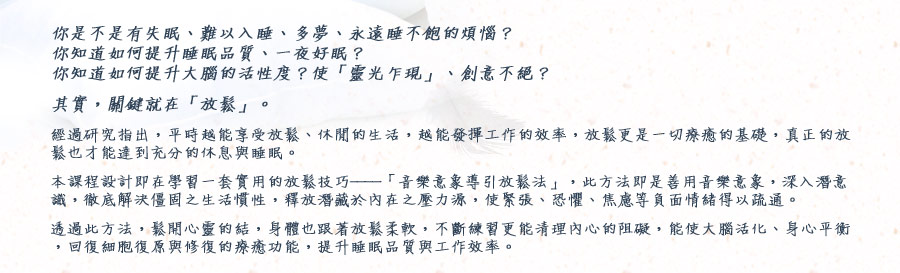 你是不是有失眠、難以入睡、多夢、永遠睡不飽的煩惱？
你知道如何提升睡眠品質、一夜好眠？
你知道如何提升大腦的活性度？使「靈光乍現」、創意不絕？
其實，關鍵就在「放鬆」。
經過研究指出，平時越能享受放鬆、休閒的生活，越能發揮工作的效率，放鬆更是一切療癒的基礎，真正的放
鬆也才能達到充分的休息與睡眠。
本課程設計即在學習一套實用的放鬆技巧——「音樂意象導引放鬆法」，此方法即是善用音樂意象，深入潛意
識，徹底解決僵固之生活慣性，釋放潛藏於內在之壓力源，使緊張、恐懼、焦慮等負面情緒得以疏通。
透過此方法，鬆開心靈的結，身體也跟著放鬆柔軟，不斷練習更能清理內心的阻礙，能使大腦活化、身心平衡
，回復細胞復原與修復的療癒功能，提升睡眠品質與工作效率。